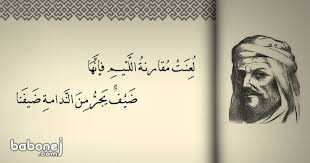 لُعِنَتْ مُقارنةُ اللَّئيمِ فإنَّهَا
ضَيْفٌ يَجرُّ مِنَ النَّدامةِ ضَيفَنَا
babonej
.com